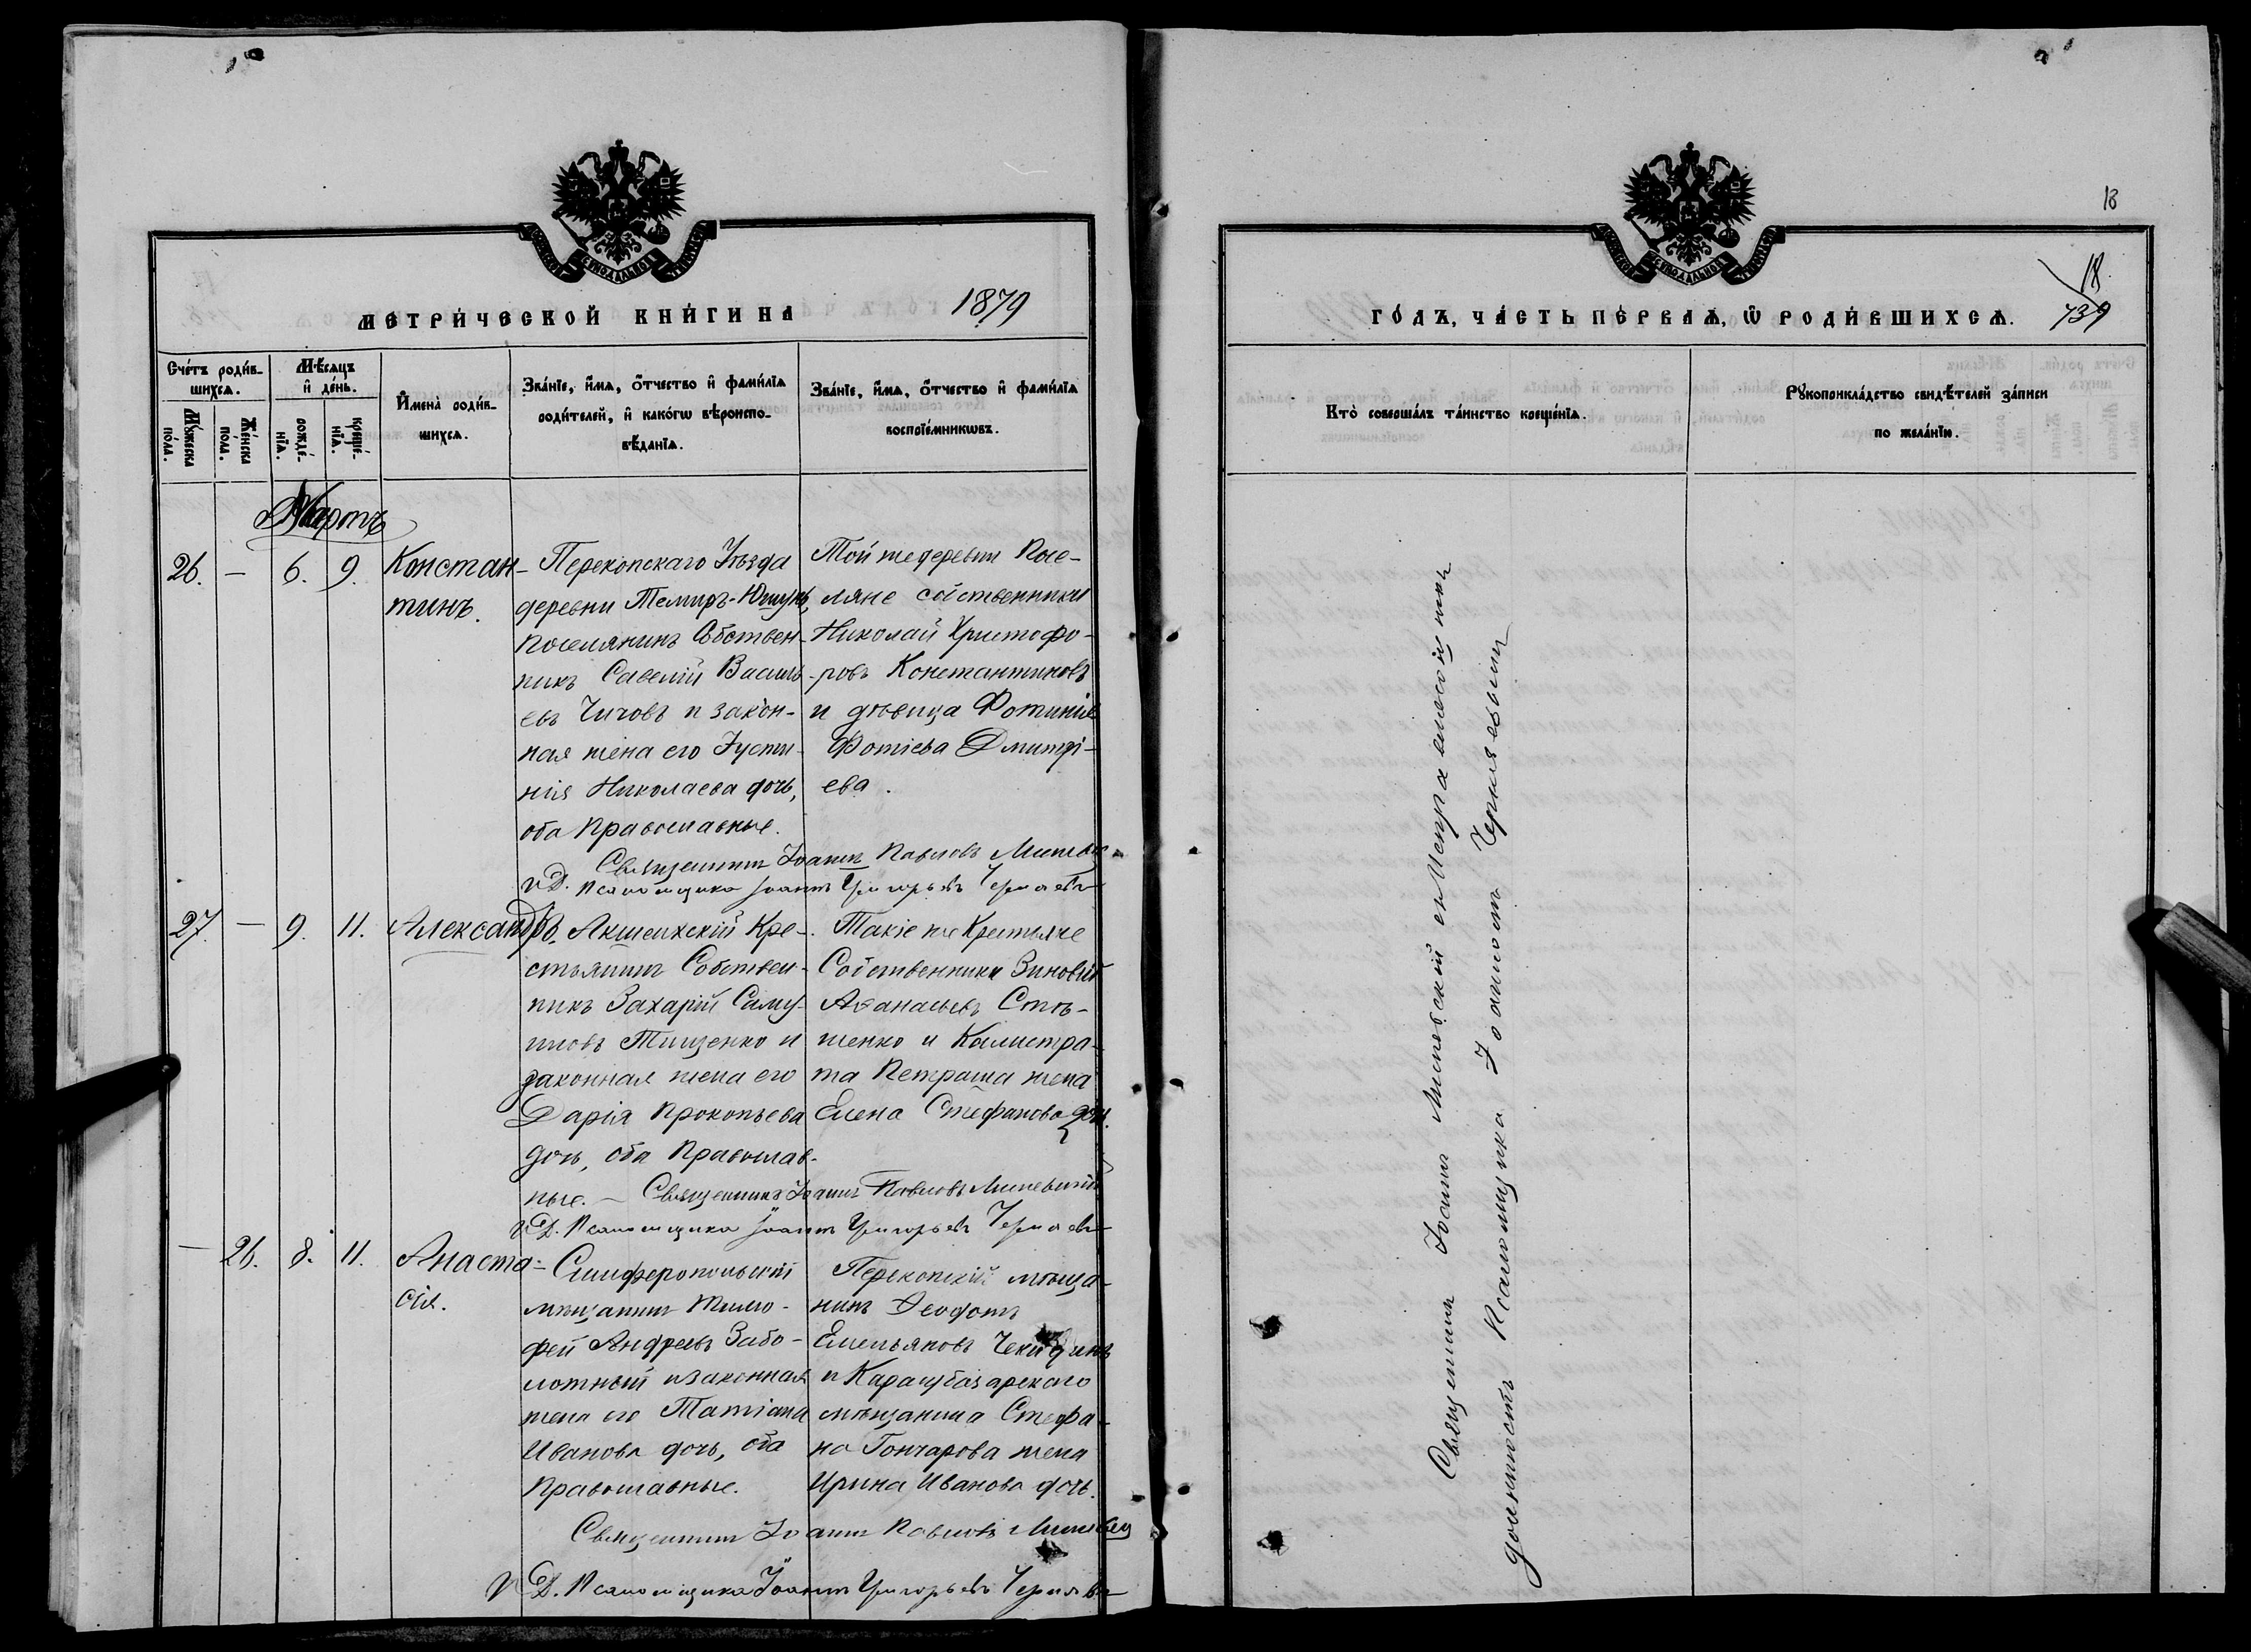 МЕТРИ́ЧЕСКОЙ КНИ́ГИ НА 1879
Сче́тъ роди́в-
шихсѧ.
Мѣ́сѧцъ
и҆ де́нь.
Мꙋ́жеска
по́ла.
Же́нска
по́ла.
рожде́-
нїѧ.
креще́-
нїѧ.
И҆мена̀ роди́в-
шихсѧ.
Зва́нїе, и҆́мѧ, ѻ҆́тчество и҆ фами́лїѧ
роди́телей, и҆ како́гѡ вѣроиспо-
вѣ́данїѧ.
Зва́нїе, и҆́мѧ, ѻ҆́тчество и҆ фами́лїѧ
воспрїе́мникѡвъ.
Мартъ
26. — 6. 9.
Констан-
тинъ.
Перекопскаго Уѣзда
деревни Темиръ-Юшунь,
Поселянинъ Собствен-
никъ Савелій Василь-
евъ Чичовъ и закон-
ная жена его Іусти-
нія Николаева дочь,
оба Православные.
Той же деревни Посе-
ляне собственники
Николай Христофо-
ровъ Константиновъ
и дѣвица Фотинія
Фотіева Дмитрі-
ева.
Священникъ Іоаннъ Павловъ
И. Д. Псаломщика Іоаннъ Григорьевъ Чернявъ
27. — 9. 11.
Александръ.
Акшеихскій Кре-
стьянинъ Собствен-
никъ Захарій Саму-
иловъ Тищенко и
законная жена его
Дарія Прокопьева
дочь, оба Православ-
ные. —
Такіе же Крестьяне
Собственники Зиновій
Аѳанасьевъ Стѣ-
шенко и Калистра-
та Петраша жена
Елена Стефанова дочь.
Священникъ Іоаннъ Павловъ
И. Д. Псаломщика Іоаннъ Григорьевъ Чернявъ
— 26. 8. 11.
Анаста-
сія.
Симферопольскій
мѣщанинъ Тимо-
фей Андреевъ Забо-
лотный и законная
жена его Татіана
Иванова дочь, оба
Православные.
Перекопскій мѣща-
нинъ Ѳеодотъ
Емельяновъ
и Карасубазарскаго
мѣщанина Стефа-
на Гончарова жена
Ирина Иванова дочь.
Священникъ Іоаннъ Павловъ
И. Д. Псаломщика Іоаннъ Григорьевъ Чернявъ
18
18
739
ГО́ДЪ, ЧА́СТЬ ПЕ́РВАѦ, Ѡ҆ РОДИ́ВШИХСѦ.
Кто̀ соверша́лъ та́инство креще́нїѧ.
Рꙋкоприкла́дство свидѣ́телей за́писи
по жела́нїю.
Священникъ Іоаннъ Милевскій съ исправляющимъ
должность Псаломщика Іоанномъ Чернявскимъ